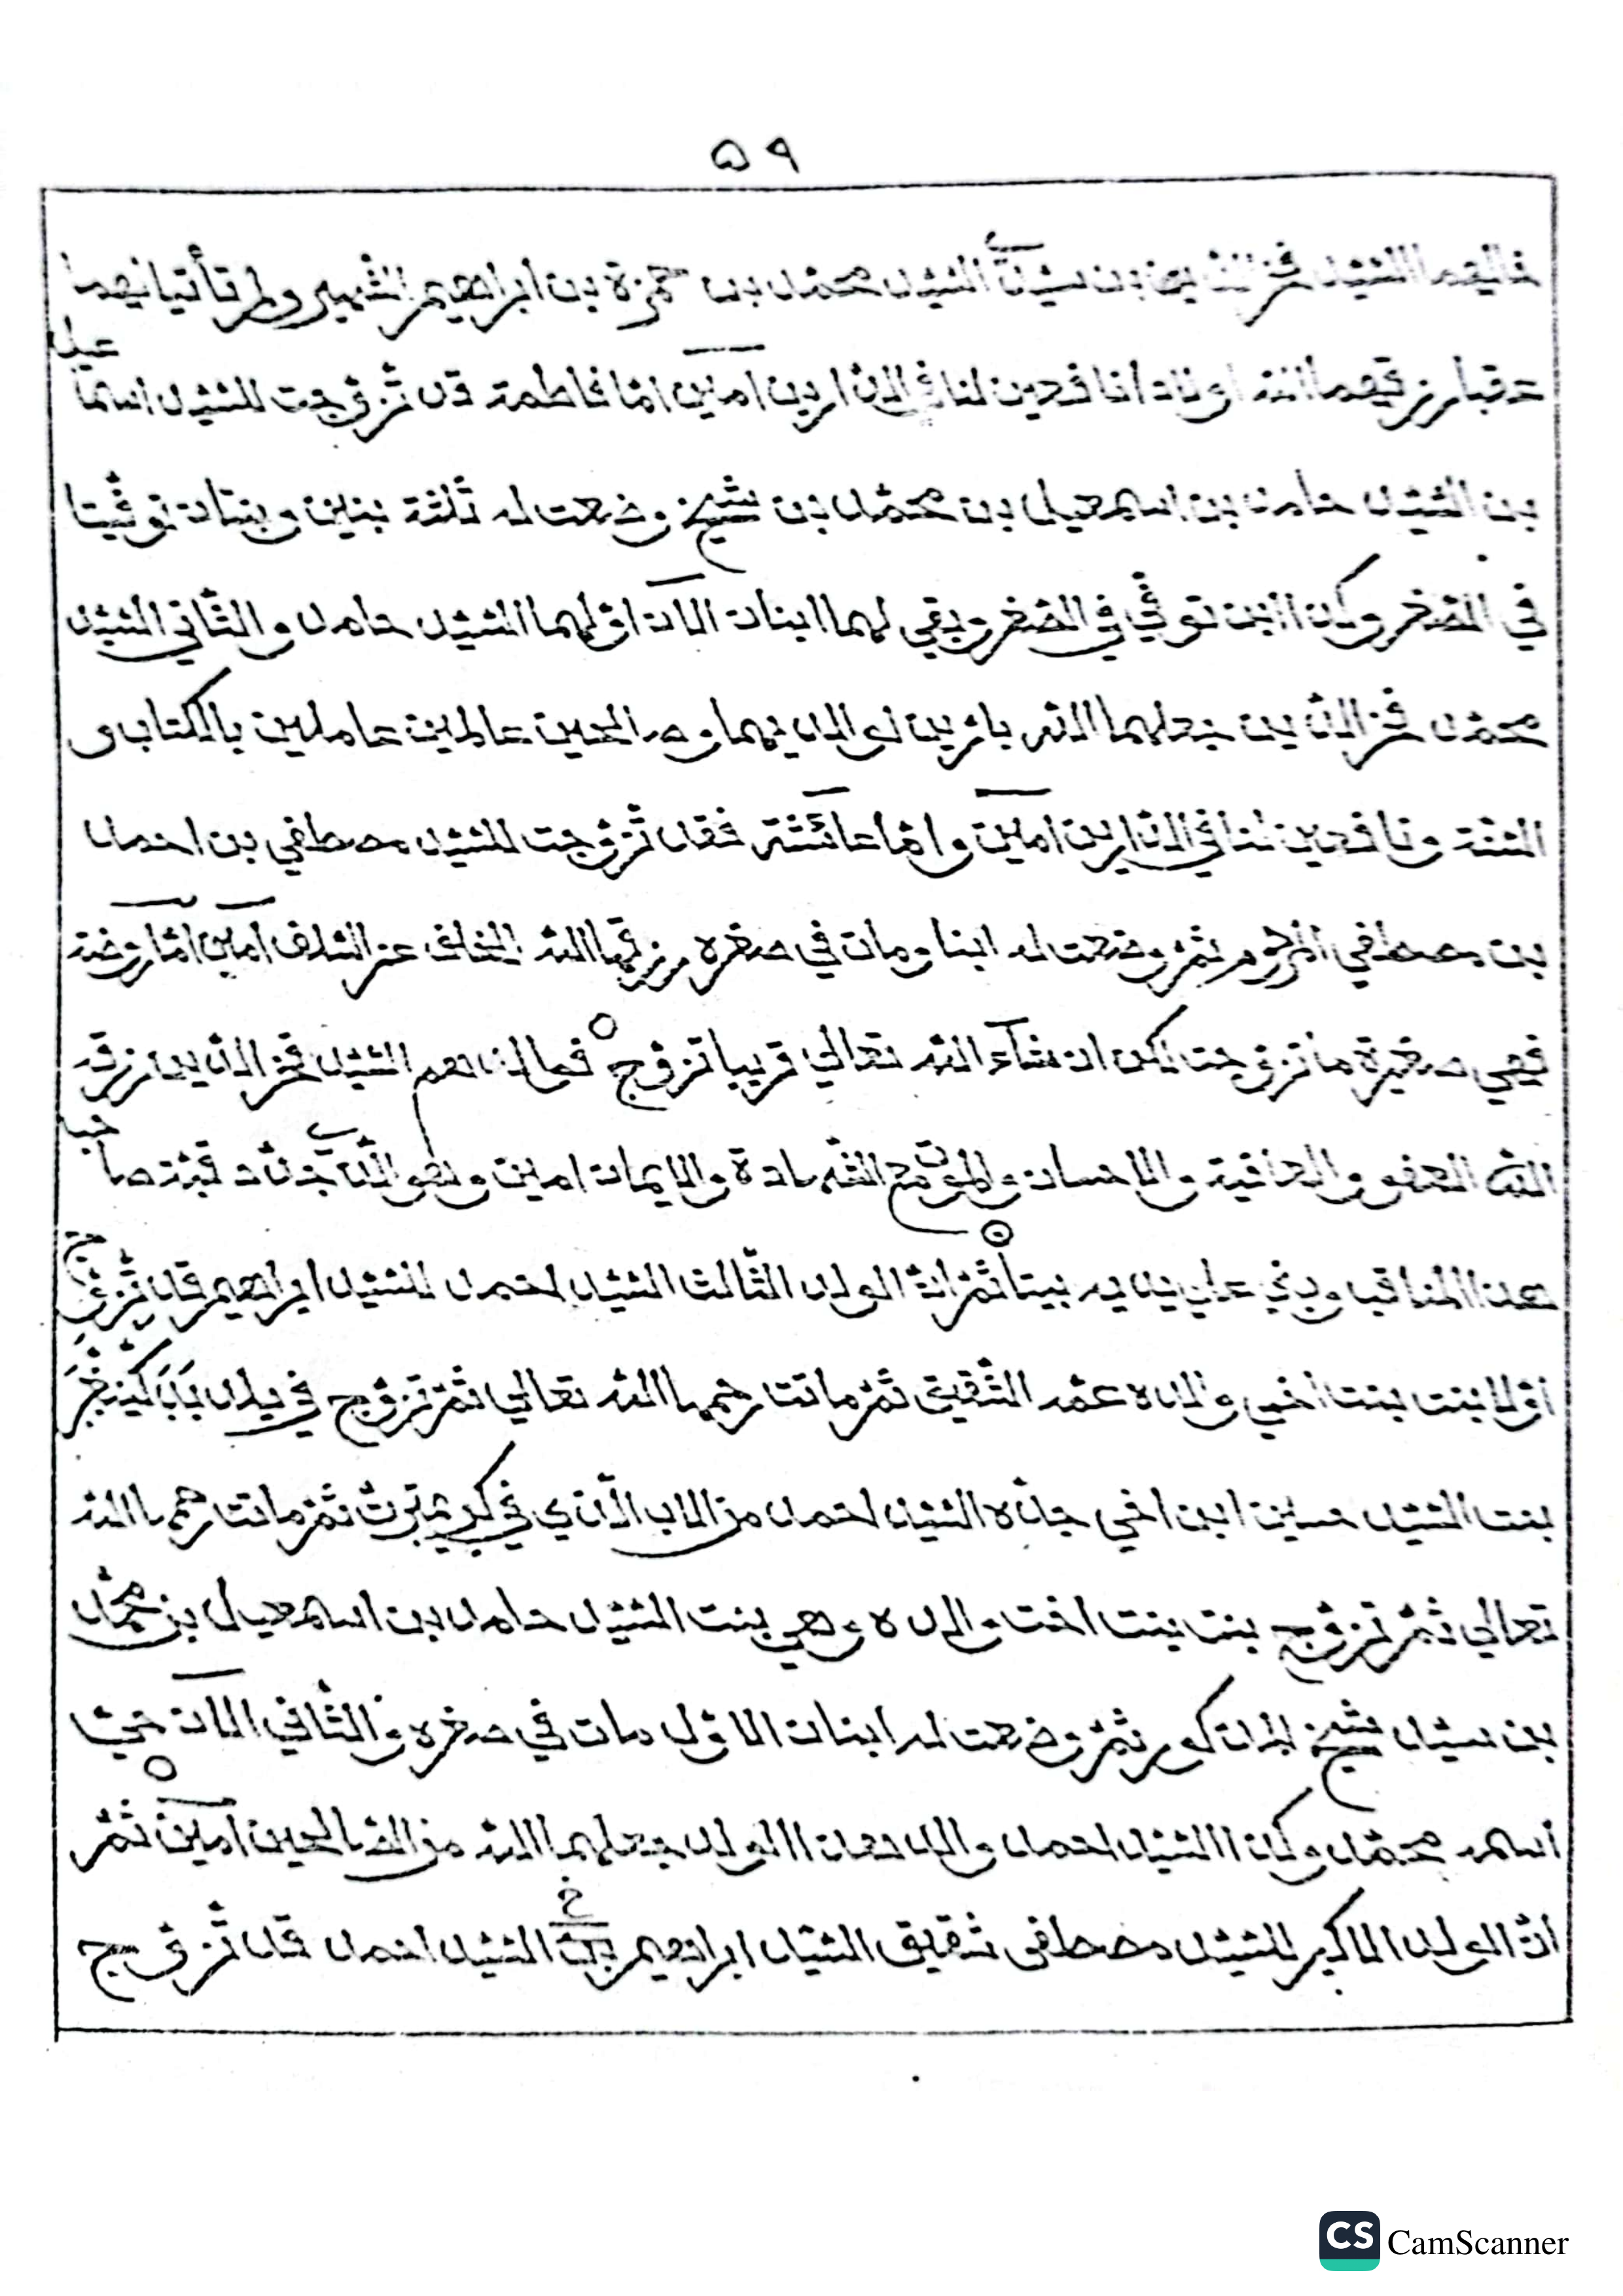 ٥٩
خاليهما السّيّد فخر الدّين بن سيّدنا السّيّد محمّد بن حمزة بن ابراهيم الشهير ولم تأتيا نهما
عقبا رزقهما الله اولادا نافعين لنا في الدّارين امين امّا فاطمة قد تزوّجت للسّيّد اسما عيل
بن السّيّد حامد بن اسمعيل بن محمّد بن شيخ وضعت له ثلثة بنين وبنتان توفّيتا
في الصّغر وكذا ابن توفّي في الصّغر وبقي لهما ابنان الآن اوّلهما السّيّد حامد والثّاني السّيّد
محمّد فخر الدّين جعلهما الله بارّين لوالديهما وصالحين عالمين عاملين بالكتاب و
السّنّة ونافعين لنا في الدّارين امين وامّا عائشة فقد تزوّجت للسّيّد مصطفي بن احمد
بن مصطفي المرحوم ثمّ وضعت له ابنا ومات في صغره رزقها الله الخلف عن السّلف امين امّا روضة
فهي صغيرة ما تزوّجت لكن ان شاء الله تعالي قريبا تزوّج فوالد هم السّيّد فخر الدّين رزقه
الله العفو والعافية والاحسان والموت مع الشّهادة والايمان امين وهو الّذي جدّد قبّة صا حب
هذا المناقب وبني علي يديه بيتا ثمّ انّ الولد الثّالث السّيّد احمد للسّيّد ابراهيم قد تزوّج
اوّلا بنت بنت اخي والده عمّه الشّقيق ثمّ ماتت رحمها الله تعالي ثمّ تزوّج في بلد
بنت السّيّد حسين ابن اخي جدّه السّيّد احمد من الاب الّذي في ثمّ ماتت رحمها الله
تعالي ثمّ تزوّج بنت بنت اخت والده وهي بنت السّيّد حامد بن اسمعيل بن محمّد
بن سيّد شيخ المذكور ثمّ وضعت له ابنان الاوّل مات في صغره والثّاني الآن حيّا
اسمه محمّد وكذا السّيّد احمد والد هذا الولد جعلهما الله من الصّالحين امين ثمّ
انّ الولد الاكبر للسّيّد مصطفي شقيق السّيّد ابراهيم بن السّيّد احمد قد تزوّج
CS CamScanner